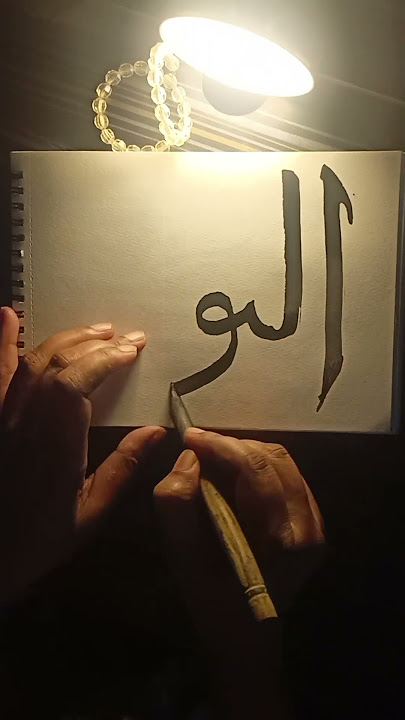 الو